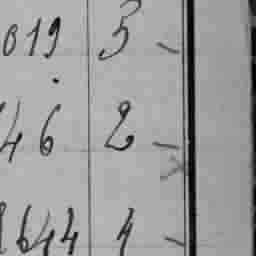 019 5 -
46 2 -
644 4 -